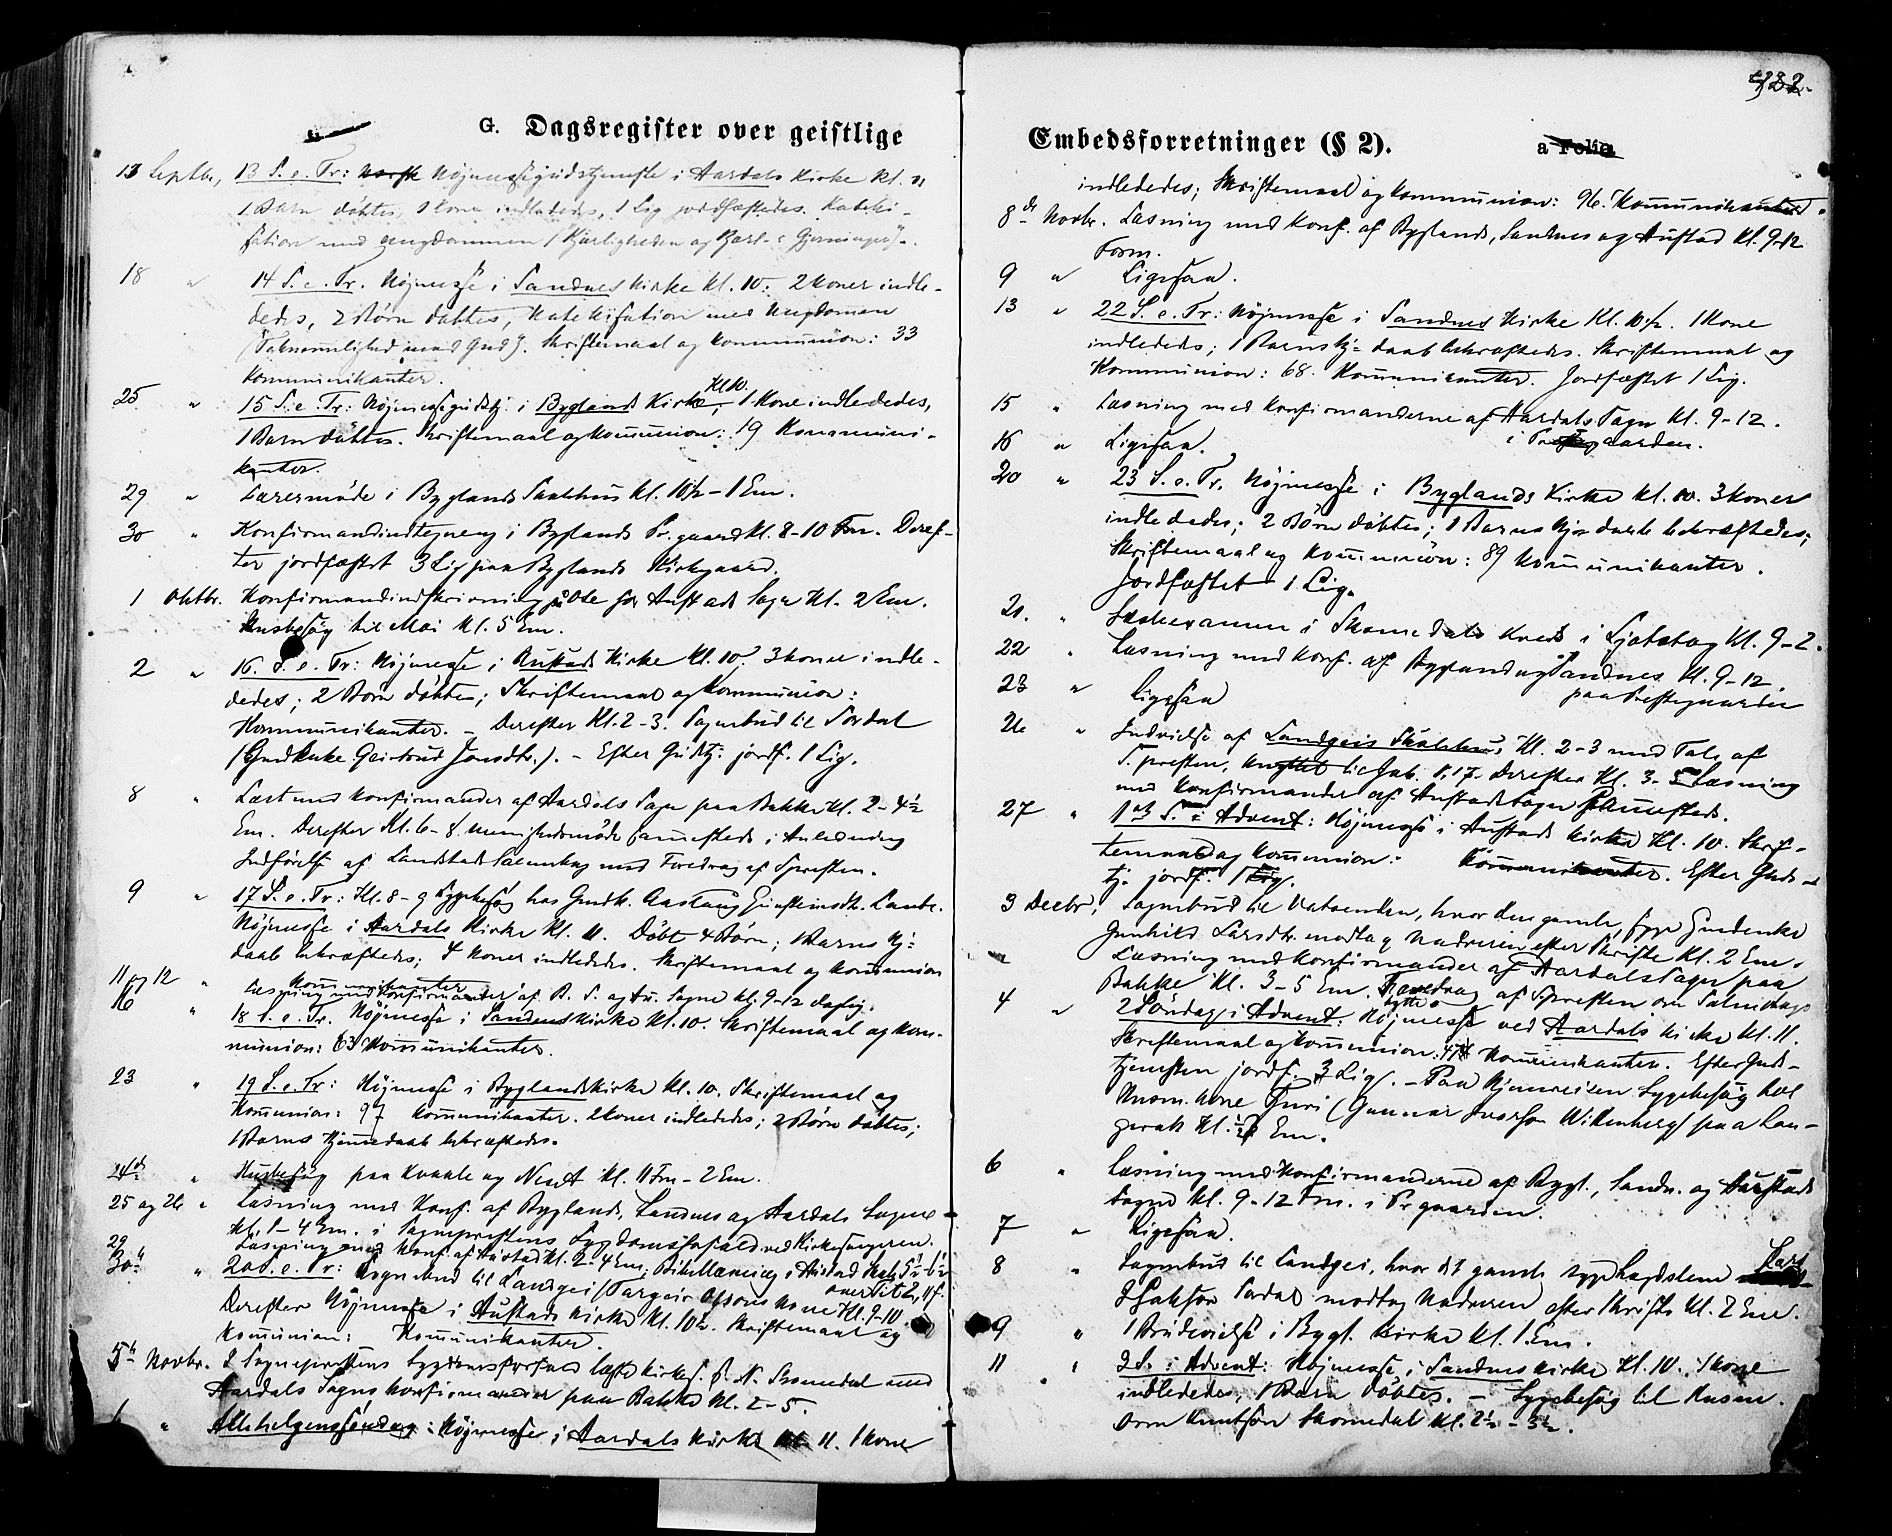 G. Dagsregister over geistlige
13 Septbr, 13 S. e. Tr: Højmessegudstjeneste i Aardals Kirke Kl. 11
1 Barn døbtes, 1 Kone indlededes, 1 Lig jordfæstedes. Kateki-
sation med ungdommen (Kjærligheden og Barl-s Gjerninger).
18 " 14 S. e. Tr. Højmesse i Sandnes Kirke Kl. 10. 2 Koner indle-
dedes, 2 Børn døbtes, Katekisation med Ungdomen
(Taknemlighed mod Gud). Skriftemaal og Kommunion: 33
Kommunikanter.
25 " 15 S. e. Tr: Højmessegudstj. i Bygland Kirke, Kl 10. 1 Kone indlededes,
1 Barn døbtes. Skriftemaal og Kommunion: 19 Kommuni-
kanter.
29 " Lærermøde i Byglands Skolehus Kl. 10½ - 1 Em.
30 " Konfirmandindtegning i Byglands Pr.gaard Kl. 8-10 Fm. Deref-
ter jordfæstet 3 Lig paa Byglands Kirkegaard.
1 Oktbr. Konfirmandindskrivning på Ose for Austads Sogn Kl. 2 Em.
Husbesøg til Moi Kl. 5 Em.
2 " 16. S. e. Tr: Højmesse i Austads Kirke Kl. 10. 3 Koner indle-
dedes; 2 Børn døbtes; Skriftemaal og Kommunion:
Kommunikanter. - Derefter Kl. 2-3. Sognebud til Sordal
(Gmdknke Geirtrud Jonsdtr.). - Efter Gudstj. jordf. 1 Lig.
8 " Læst med Konfirmander af Aardals Sogn paa Bakke Kl. 2-4½
Em. Derefter Kl. 6-8 menighedsmøde sammesteds i Anledning
Indførelse af Landstads Salmebog med Foredrag af Spresten.
9 " 17 S. e. Tr: Kl. 8-9 Sygebesøg hos Gmdk. Aaslaug
Højmesse i Aardals Kirke Kl. 11. Døbt 4 Børn; 1 Barns Hj=
daab bekræftedes; 4 Koner indlededes. Skriftemaal og Kommunion
Kommunikanter
11 og 12 " Læsning med Konfirmanter af B. S. og Au. Sogne Kl. 9-12 daglig.
16 " 18 S. e. Tr. Højmesse i Sandnes Kirke Kl. 10. Skriftemaal og Kom-
munion: 63 Kommunikanter.
23 " 19 S. e. Tr: Højmesse i Byglands Kirke Kl. 10. Skriftemaal og
Kommunion: 97 Kommunikanter. 2 Koner indlededes; 2 Børn døbtes;
1 Barns Hjemmedaab bekræftedes.
24de " Husbesøg paa Kvaale og Neset Kl. 11 Fm - 2 Em.
25 og 26 " Læsning med Konf. af Byglands, Sandnes og Aardals Sogne
Kl. 1-4 Em. i Sogneprestens Sygdomsforfald ved Kirkesangeren.
29 Læsning med Konf. af Austad Kl. 2-4 Em; Bibellæsning i Austad Kl. 5½-6½
over Tit 2, 11 f.
30te " 20 S. e. Tr: Sognebud til Landgei (Targeir Olsons Kone Kl. 9-10
Derefter Højmesse i Austads Kirke Kl. 10½. Skriftemaal og
Kommunion: Kommunikanter.
5te Novbr. I Sogneprestens Sygdomsforfald læste Kirkes. B. N. Skomedal med
Aardals Sogns Konfirmander paa Bakke Kl. 2-5.
6 " Allehelgenssøndag: Højmesse i Aardals Kirke Kl. 11. 1 Kone
Embedsforretninger (§ 2).
a Folio
indlededes; Skriftemaal og Kommunion: 96. Kommunikanter.
8de Novbr. Læsning med Konf. af Byglands, Sandnes og Austad Kl. 9-12
Form.
9 " Ligesaa.
13 " 22 S. e. Tr: Højmesse i Sandnes Kirke Kl. 10½. 1 Kone
indlededes; 1 Barns Hj=daab bekræftedes. Skriftemaal og
Kommunion: 68. Kommunikanter. Jordfæstet 1 Lig.
15 " Læsning med Konfirmanderne af Aardals Sogn Kl. 9-12.
i Prestegaarden.
16 " Ligesaa.
20 " 23 S. e. Tr. Højmesse i Byglands Kirke Kl. 10. 3 Koner
indlededes; 2 Børn døbtes; 1 Barns Hjdaab bekræftedes;
Skriftemaal og Kommunion: 89 Kommunikanter.
Jordfæstet 1 Lig.
21. " i Skomedals Kreds i Kl. 9-2.
22 " Læsning med Konf. af Bygland og Sandnes Kl. 9-12.
paa Prestegaarden
23 " Ligesaa
26 " Indvielse af Landgeis Skolehus Kl. 2-3 med Tale af
S.presten, knyttet til Jak. 1,17. Derefter Kl. 3-5 Læsning
med Konfirmander af Austads Sogn sammesteds.
27 " 1ste S. i Advent: Højmesse i Austads Kirke Kl. 10. Skrif-
temaal og Kommunion: Kommunikanter. Efter Guds-
tj. jordf. 1 Lig.
3 Decbr, Sognebud til Vatsenden, hvor den gamle, syge Gmdenke
Gunhild Larsdtr. modtog Nadveren efter Skrifte Kl. 2 Em.
" Læsning med Konfirmander af Aardals Sogn paa
Bakke Kl. 3-5 Em. Foredrag af Spresten om
4 " 2 Søndag i Advent: Højmesse ved Aardals Kirke Kl. 11.
Skriftemaal og Kommunion: 47 Kommunikanter. Efter Guds-
tjenesten jordf. 3 Lig. - Paa Hjemreisen Sygebesøg hos
Husm. Kone Guri (Gunnar Ivarson Wikenberg) paa Lau-
gerak Kl. Em.
6 " Læsning med Konfirmanderne af Bygl., Sandn. og Austads
Sogne Kl. 9-12 Fm. i Pr.gaarden.
7 " Ligesaa.
8 " Sognebud til Landgei, hvor det gamle syge Lægdslem
Sordal modtog Nadveren efter Skrifte Kl. 2 Em.
9 " 1 Brudevielse i Bygl. Kirke Kl. 1 Em.
11 " 3 S. i Advent: Højmesse i Sandnes Kirke Kl. 10. 1 Kone
indlededes, 1 Barn døbtes. - Sygebesøg til Husm.
Orm Knutsøn Skomedal Kl. 2½-3½.